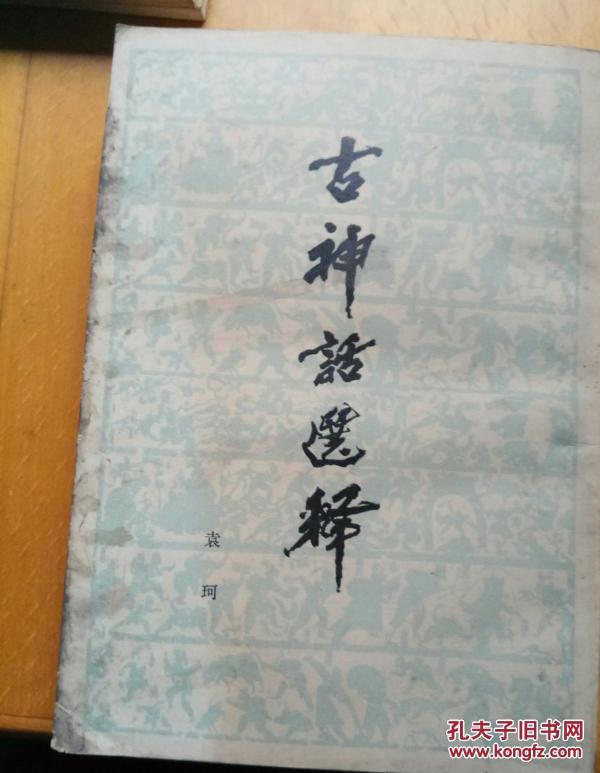 古神話選释
袁珂
孔夫子旧书网
www.kongfz.com